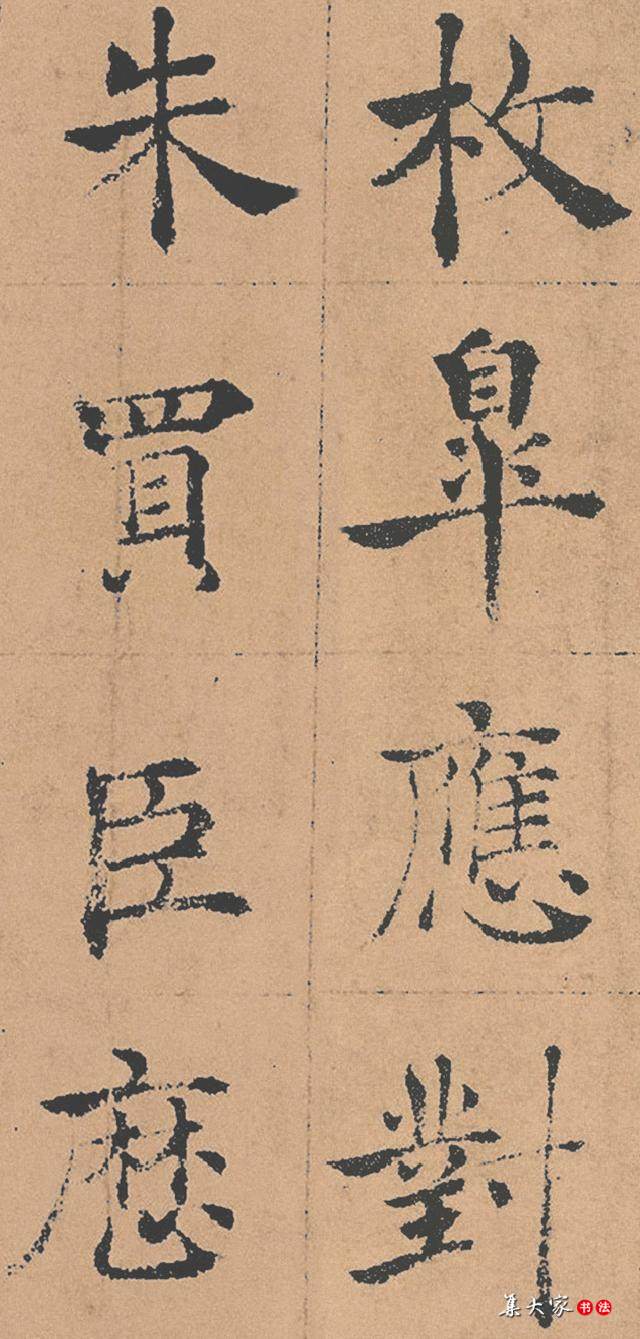 枚臯應對
朱買臣歷
集大家书法